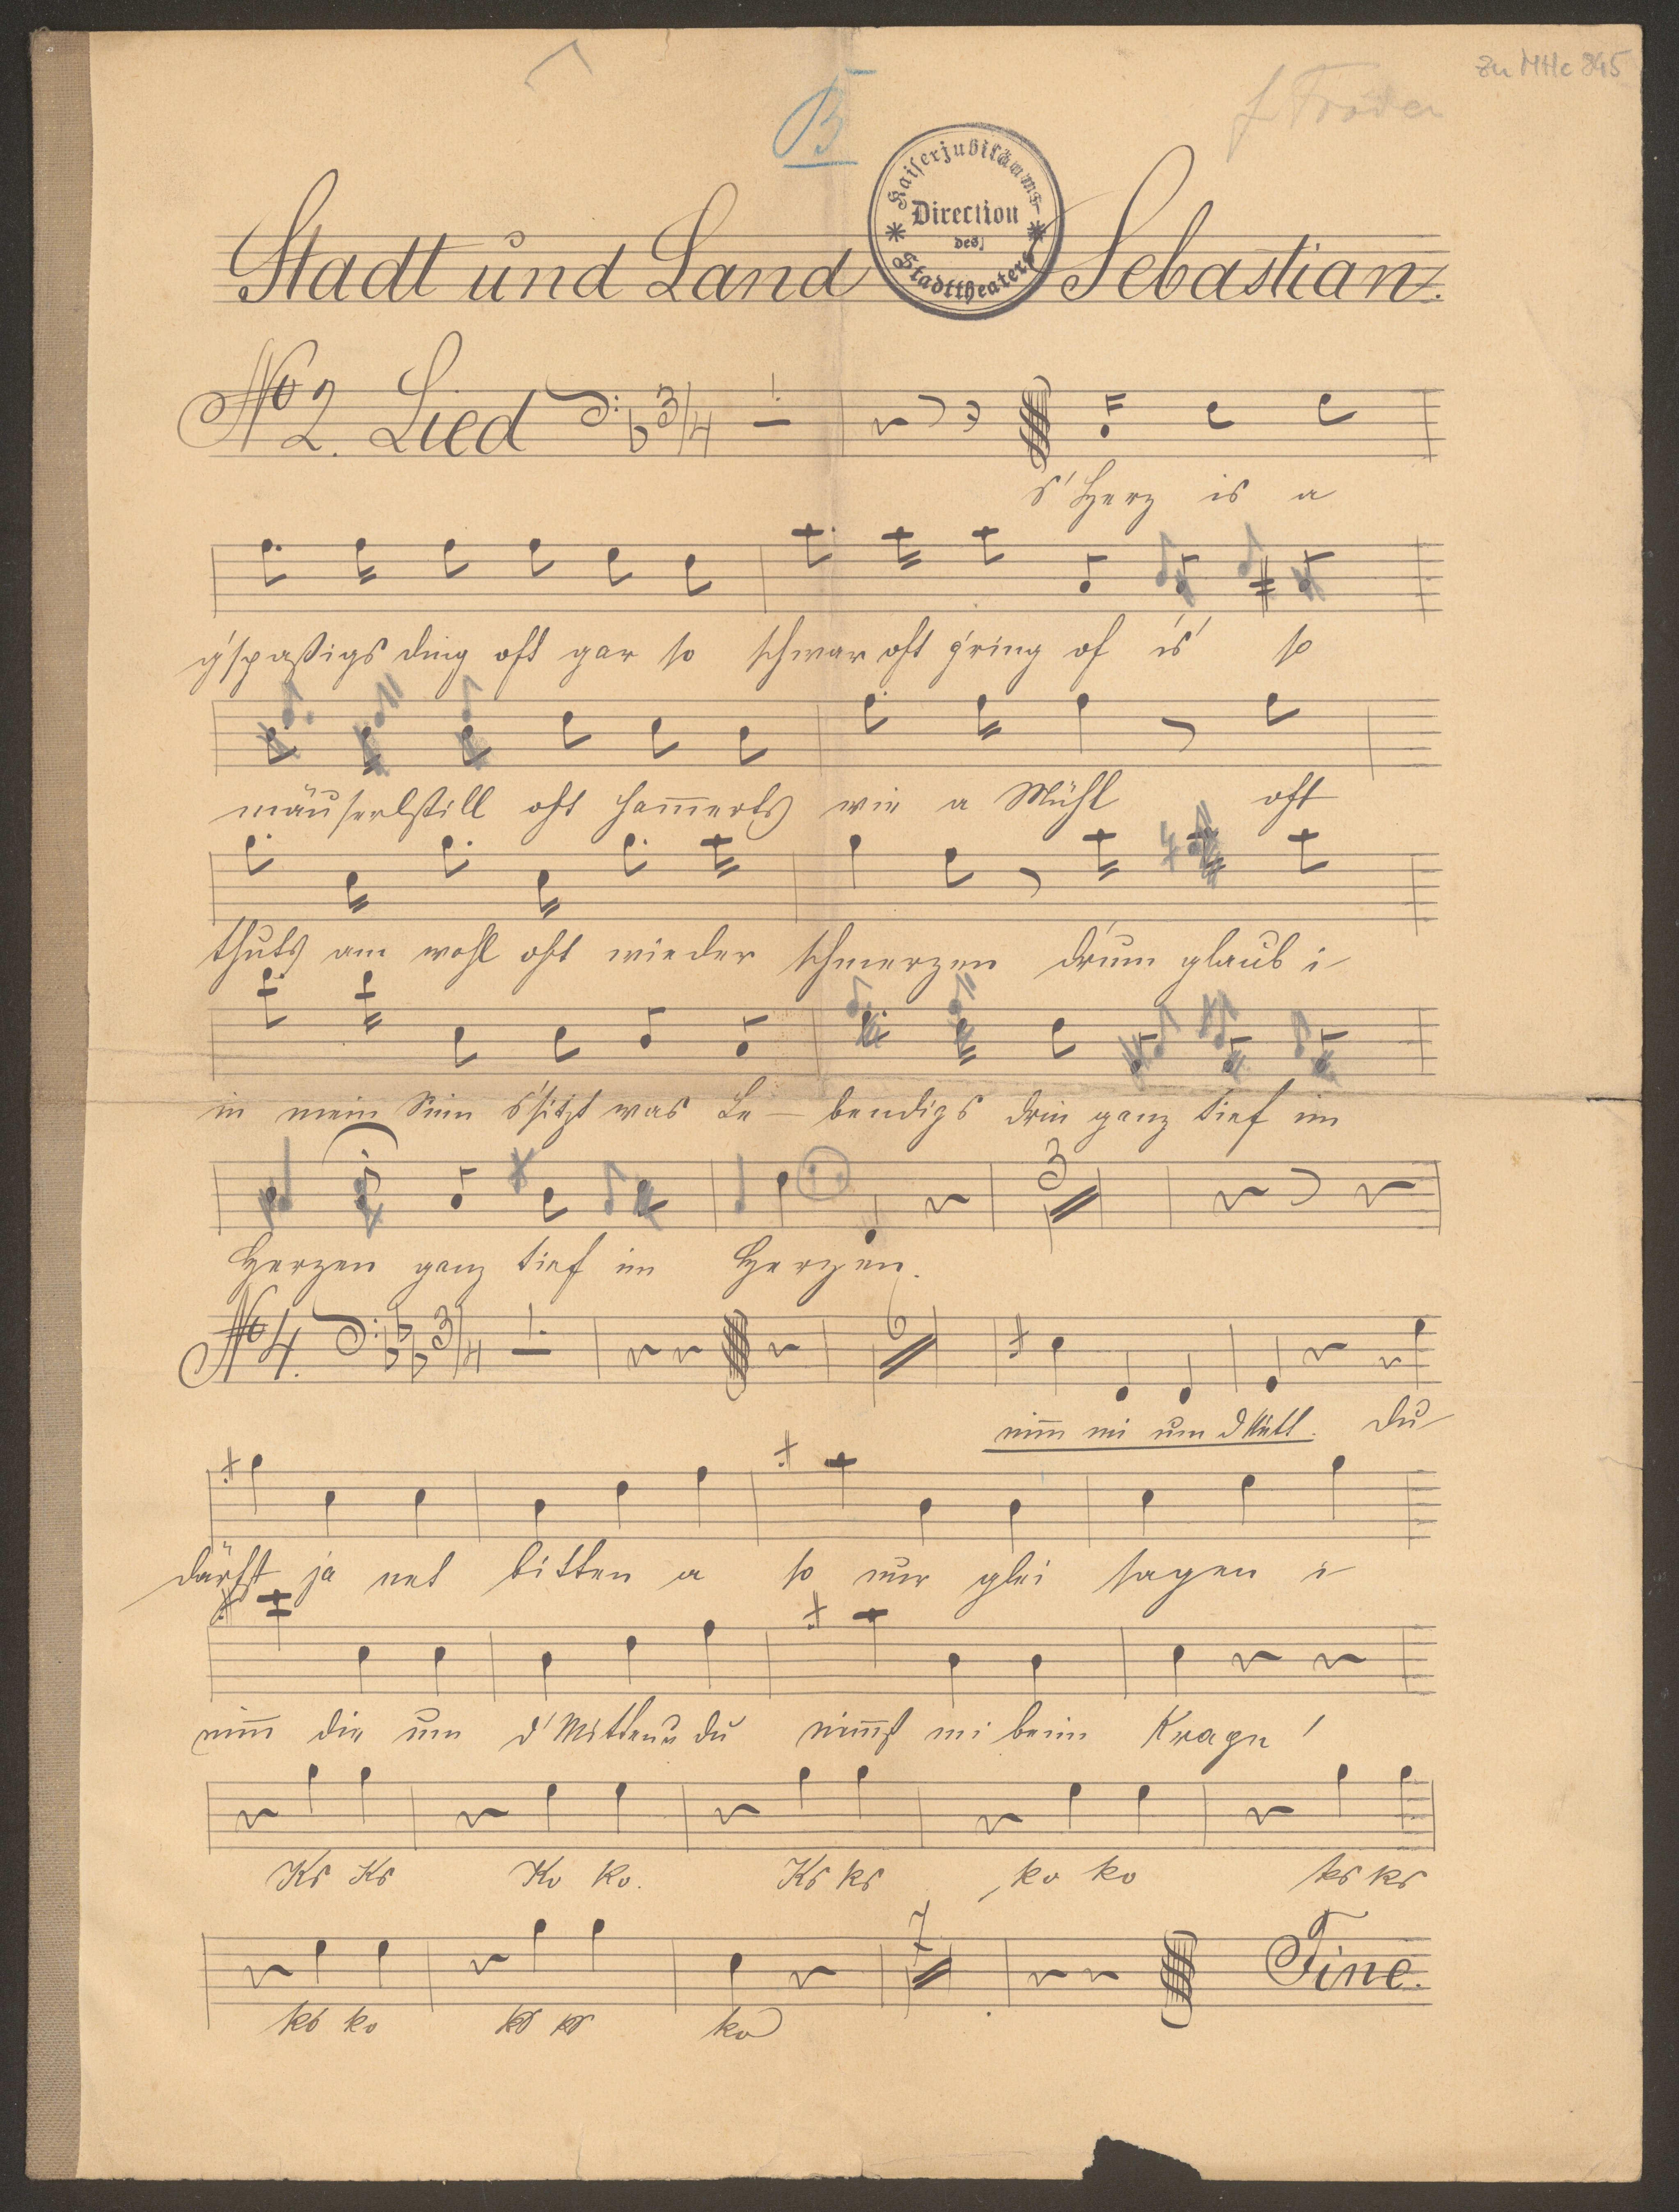 zu MHc 845
B
Kaiserjubiläums
Direction
des
Stadttheaters
Stadt und Land Sebastian.
No 2. Lied 3/4
s'Herz is a
g'spaßigs ding oft gar so schwar oft g'ring of is' so
mäuserlstill oft ham̅erts wie a Mühl oft
thuts am wohl oft wieder schmerzen dr'um glaub i
in mein Sinn s'sitzt was Le - bendigs drin ganz tief im
Herzen ganz tief im Herzen.
3
No 4. 3/4 6
nim̅ mi um d Du
därfst ja net bitten a so nur glei sagen i
nim̅ die um d'Mitten u du nim̅st mi beim Kragn'
Ks Ks Ko ko. Ks ks ko ko ks ks
ko ko ks ks ko
7 Fine.